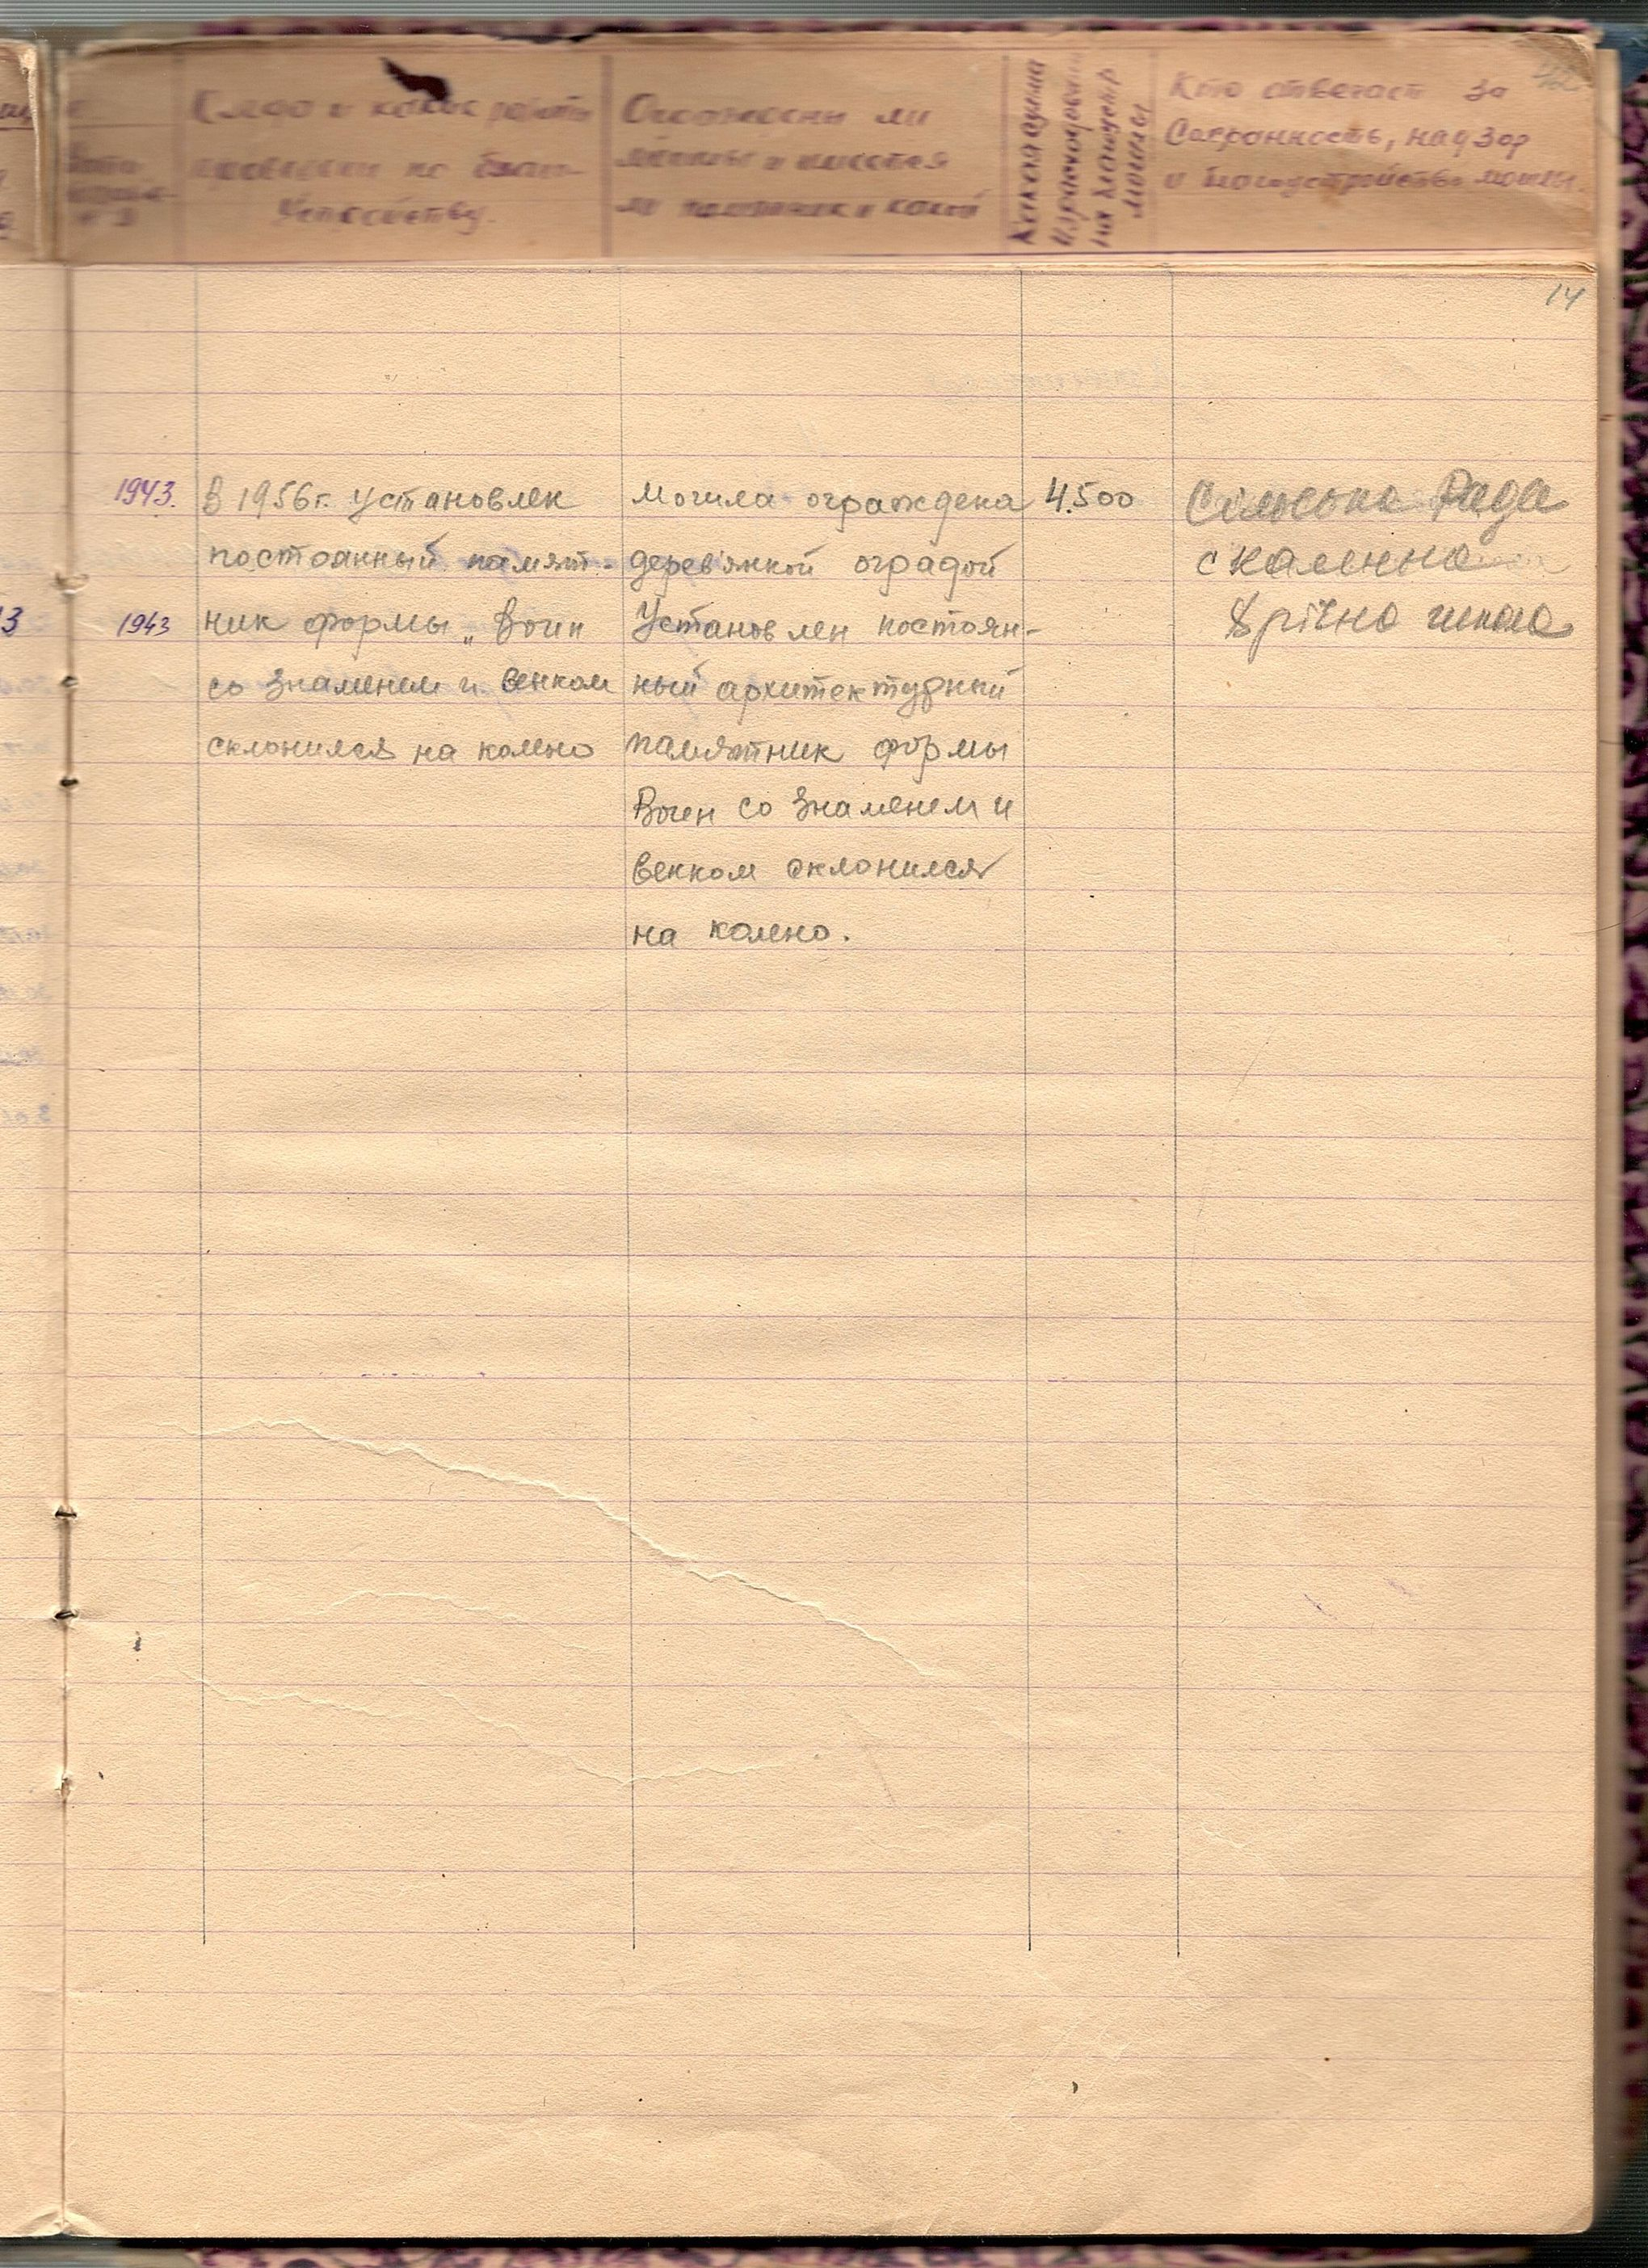 и какие работы
проведены по благо-
устройству.
Ограждены ли
могилы и имеется
ли памятник и какой
Какая сумма
израсходована
на благоустр
могилы
Кто отвечает за
Сохранность, надзор
и благоустройство могилы.
14
1943.
1943
3
В 1956 г. установлен
постоянный памят-
ник формы „Воин
со знаменем и венком
склонился на колено
могила ограждена
деревянной оградой
Установлен постоян-
ный архитектурный
памятник формы
Воин со знаменем и
венком склонился
на колено.
4.500
Сільська Рада
с Каменно
8 річна школа